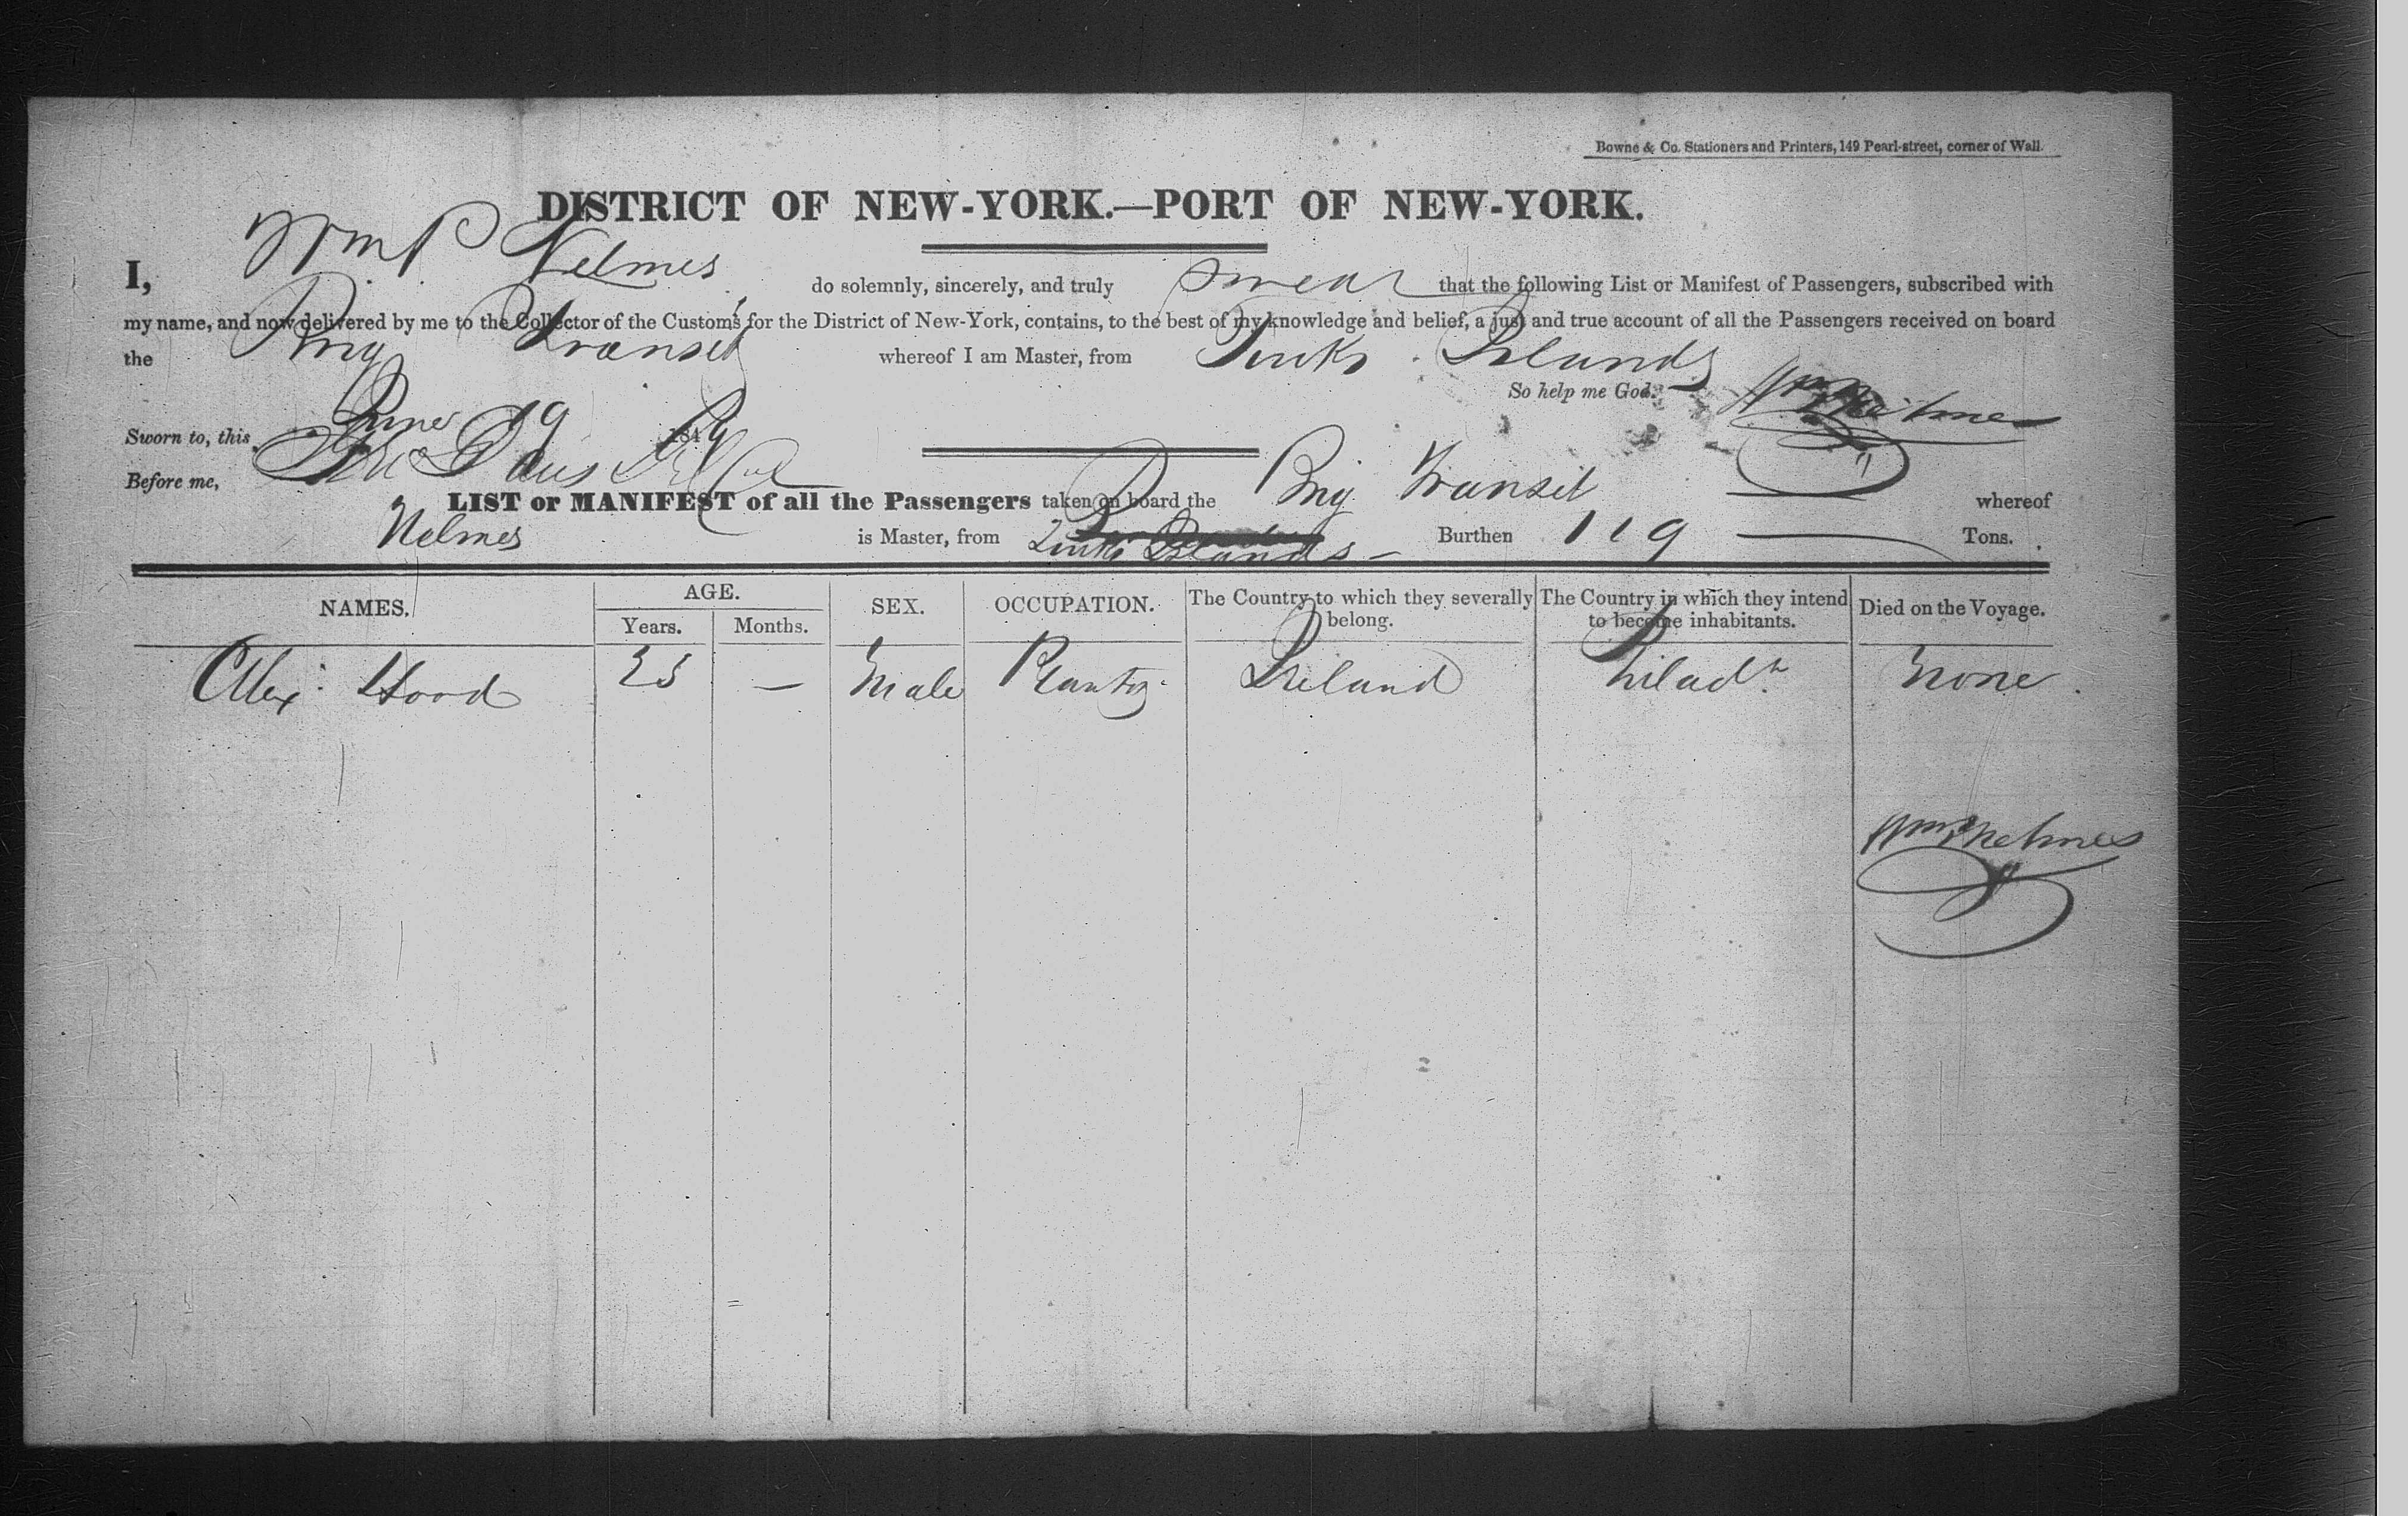 Bowne & Co. Stationers and Printers, 149 Pearl-street, corner of Wall.
DISTRICT OF NEW-YORK.—PORT OF NEW-YORK.
I, Wm P Nelmes do solemnly, sincerely, and truly swear that the following List or Manifest of Passengers, subscribed with
my name, and now delivered by me to the Collector of the Customs for the District of New-York, contains, to the best of my knowledge and belief, a just and true account of all the Passengers received on board
the Brig Transit whereof I am Master, from Turks Islands
So help me God. Wm P Nelmes
Sworn to, this June 19 184
Before me,
LIST or MANIFEST of all the Passengers taken on board the Brig Transit whereof
Nelmes is Master, from Turks Islands Burthen 119 Tons.
NAMES. AGE. SEX. OCCUPATION. The Country to which they severally belong. The Country in which they intend to become inhabitants. Died on the Voyage.
Years. Months.
Alex: Hood 25 — Male Planter Ireland Philad.ª None.
Wm P Nelmes